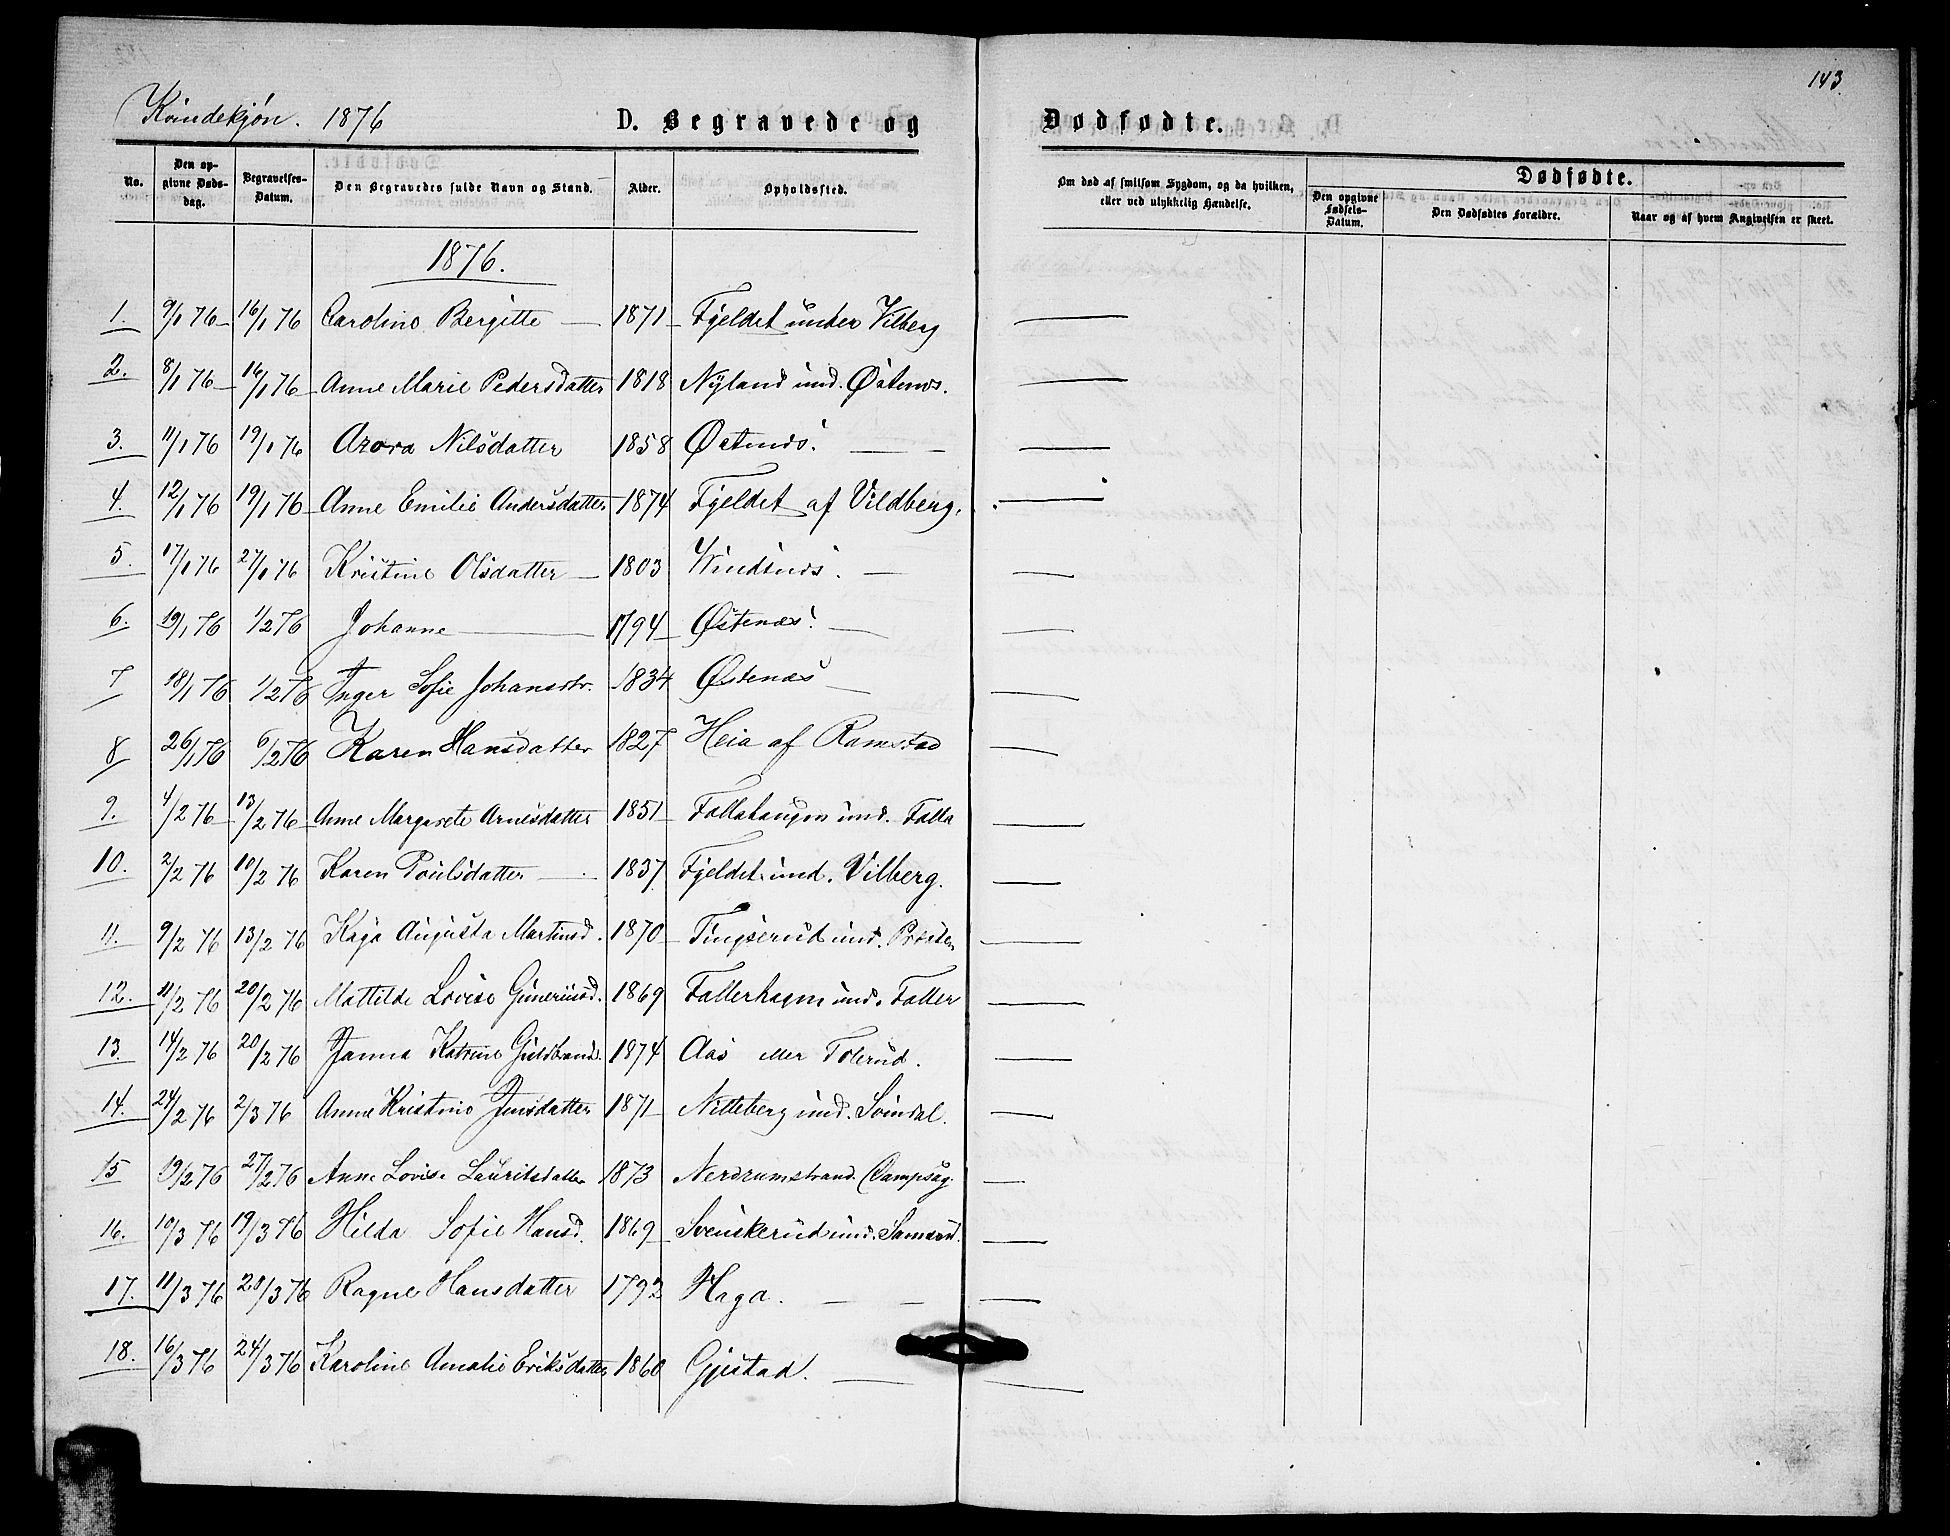 143
Kvindekjøn. 1876 D. Begravede og Dødfødte.
No. Den opgivne Dødsdag. Begravelses-Datum. Den Begravedes fulde Navn og Stand. Alder. Opholdssted. Om død af smitsom Sygdom, og da hvilken, eller ved ulykkelig Hændelse. Dødfødte. Den opgivne Fødsels-Datum. Den Dødfødtes Forældre. Naar og af hvem Angivelsen er skeet.
1876.
1. 9/1 76 16/1 76 Caroline Bergitte — 1871 Fjeldet under Vilberg —
2. 8/1 76 16/1 76 Anne Marie Pedersdatter 1818 Nyland und. Østenes. —
3. 11/1 76 19/1 76 Arora Nilsdatter 1858 Østenes. —
4. 12/1 76 19/1 76 Anne Emilie Andersdatter 1874 Fjeldet af Vildberg. —
5. 17/1 76 27/1 76 Kristine Olsdatter — 1803 —
6. 19/1 76 1/2 76 Johanne — 1794 Østenæs. —
7 18/1 76 1/2 76 Inger Sofie Johansdtr. 1834 Østenæs —
8 26/1 76 6/2 76 Karen Hansdatter 1827 Heia af Ramstad —
9. 4/2 76 13/2 76 Anne Margarete Arnesdatter 1851 Fallahaugen und. Falla —
10. 2/2 76 10/2 76 Karen Poulsdatter — 1837 Fjeldet und. Vilberg. —
11. 9/2 76 13/2 76 Kaja Augusta Martinsd. 1870 Tingserud und. —
12. 11/2 76 20/2 76 Mattilde Lovise Guneriusd. 1869 Fallerhagen und. Faller —
13. 14/2 76 20/2 76 Janna Katrine Guldbrandsd. 1874 Aas eller Tolerud. —
14. 24/2 76 2/3 76 Anne Kristine Jensdatter 1871 Nitteberg und. —
15 19/2 76 27/2 76 Anne Lovise Lauritsdatter 1873 Nerdrumstrand. Dampsag. —
16. 10/3 76 19/3 76 Hilda Sofie Hansd. 1869 Svenskerud und. —
17. 11/3 76 20/3 76 Ragne Hansdatter 1792 Haga. —
18. 16/3 76 24/3 76 Karoline Amalie Eriksdatter 1860 Gjestad. —